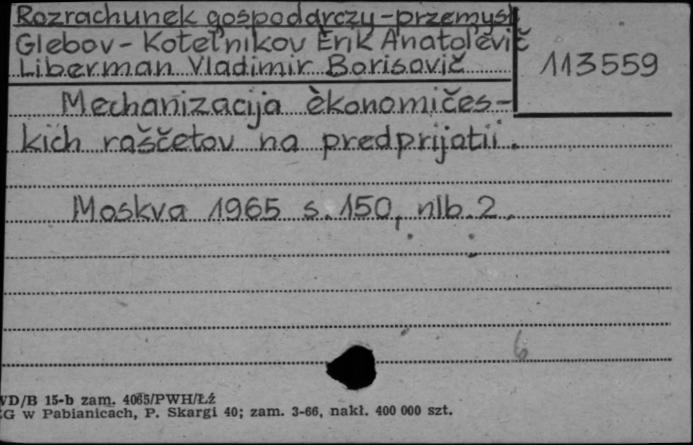 Rozrachunek gospodarczy - przemysł
Glebov - Kotel'nikov Èrik Anatol'evič
Liberman Vladimir Borisovič
113559
Mechanizacija èkonomičes-
kich rasčetov na predprijatii.
Moskva 1965 s. 150, nlb. 2.
6
WD/B 15-b zam. 4065/PWH/Łż
G w Pabianicach, P. Skargi 40; zam. 3-66, nakł. 400 000 szt.